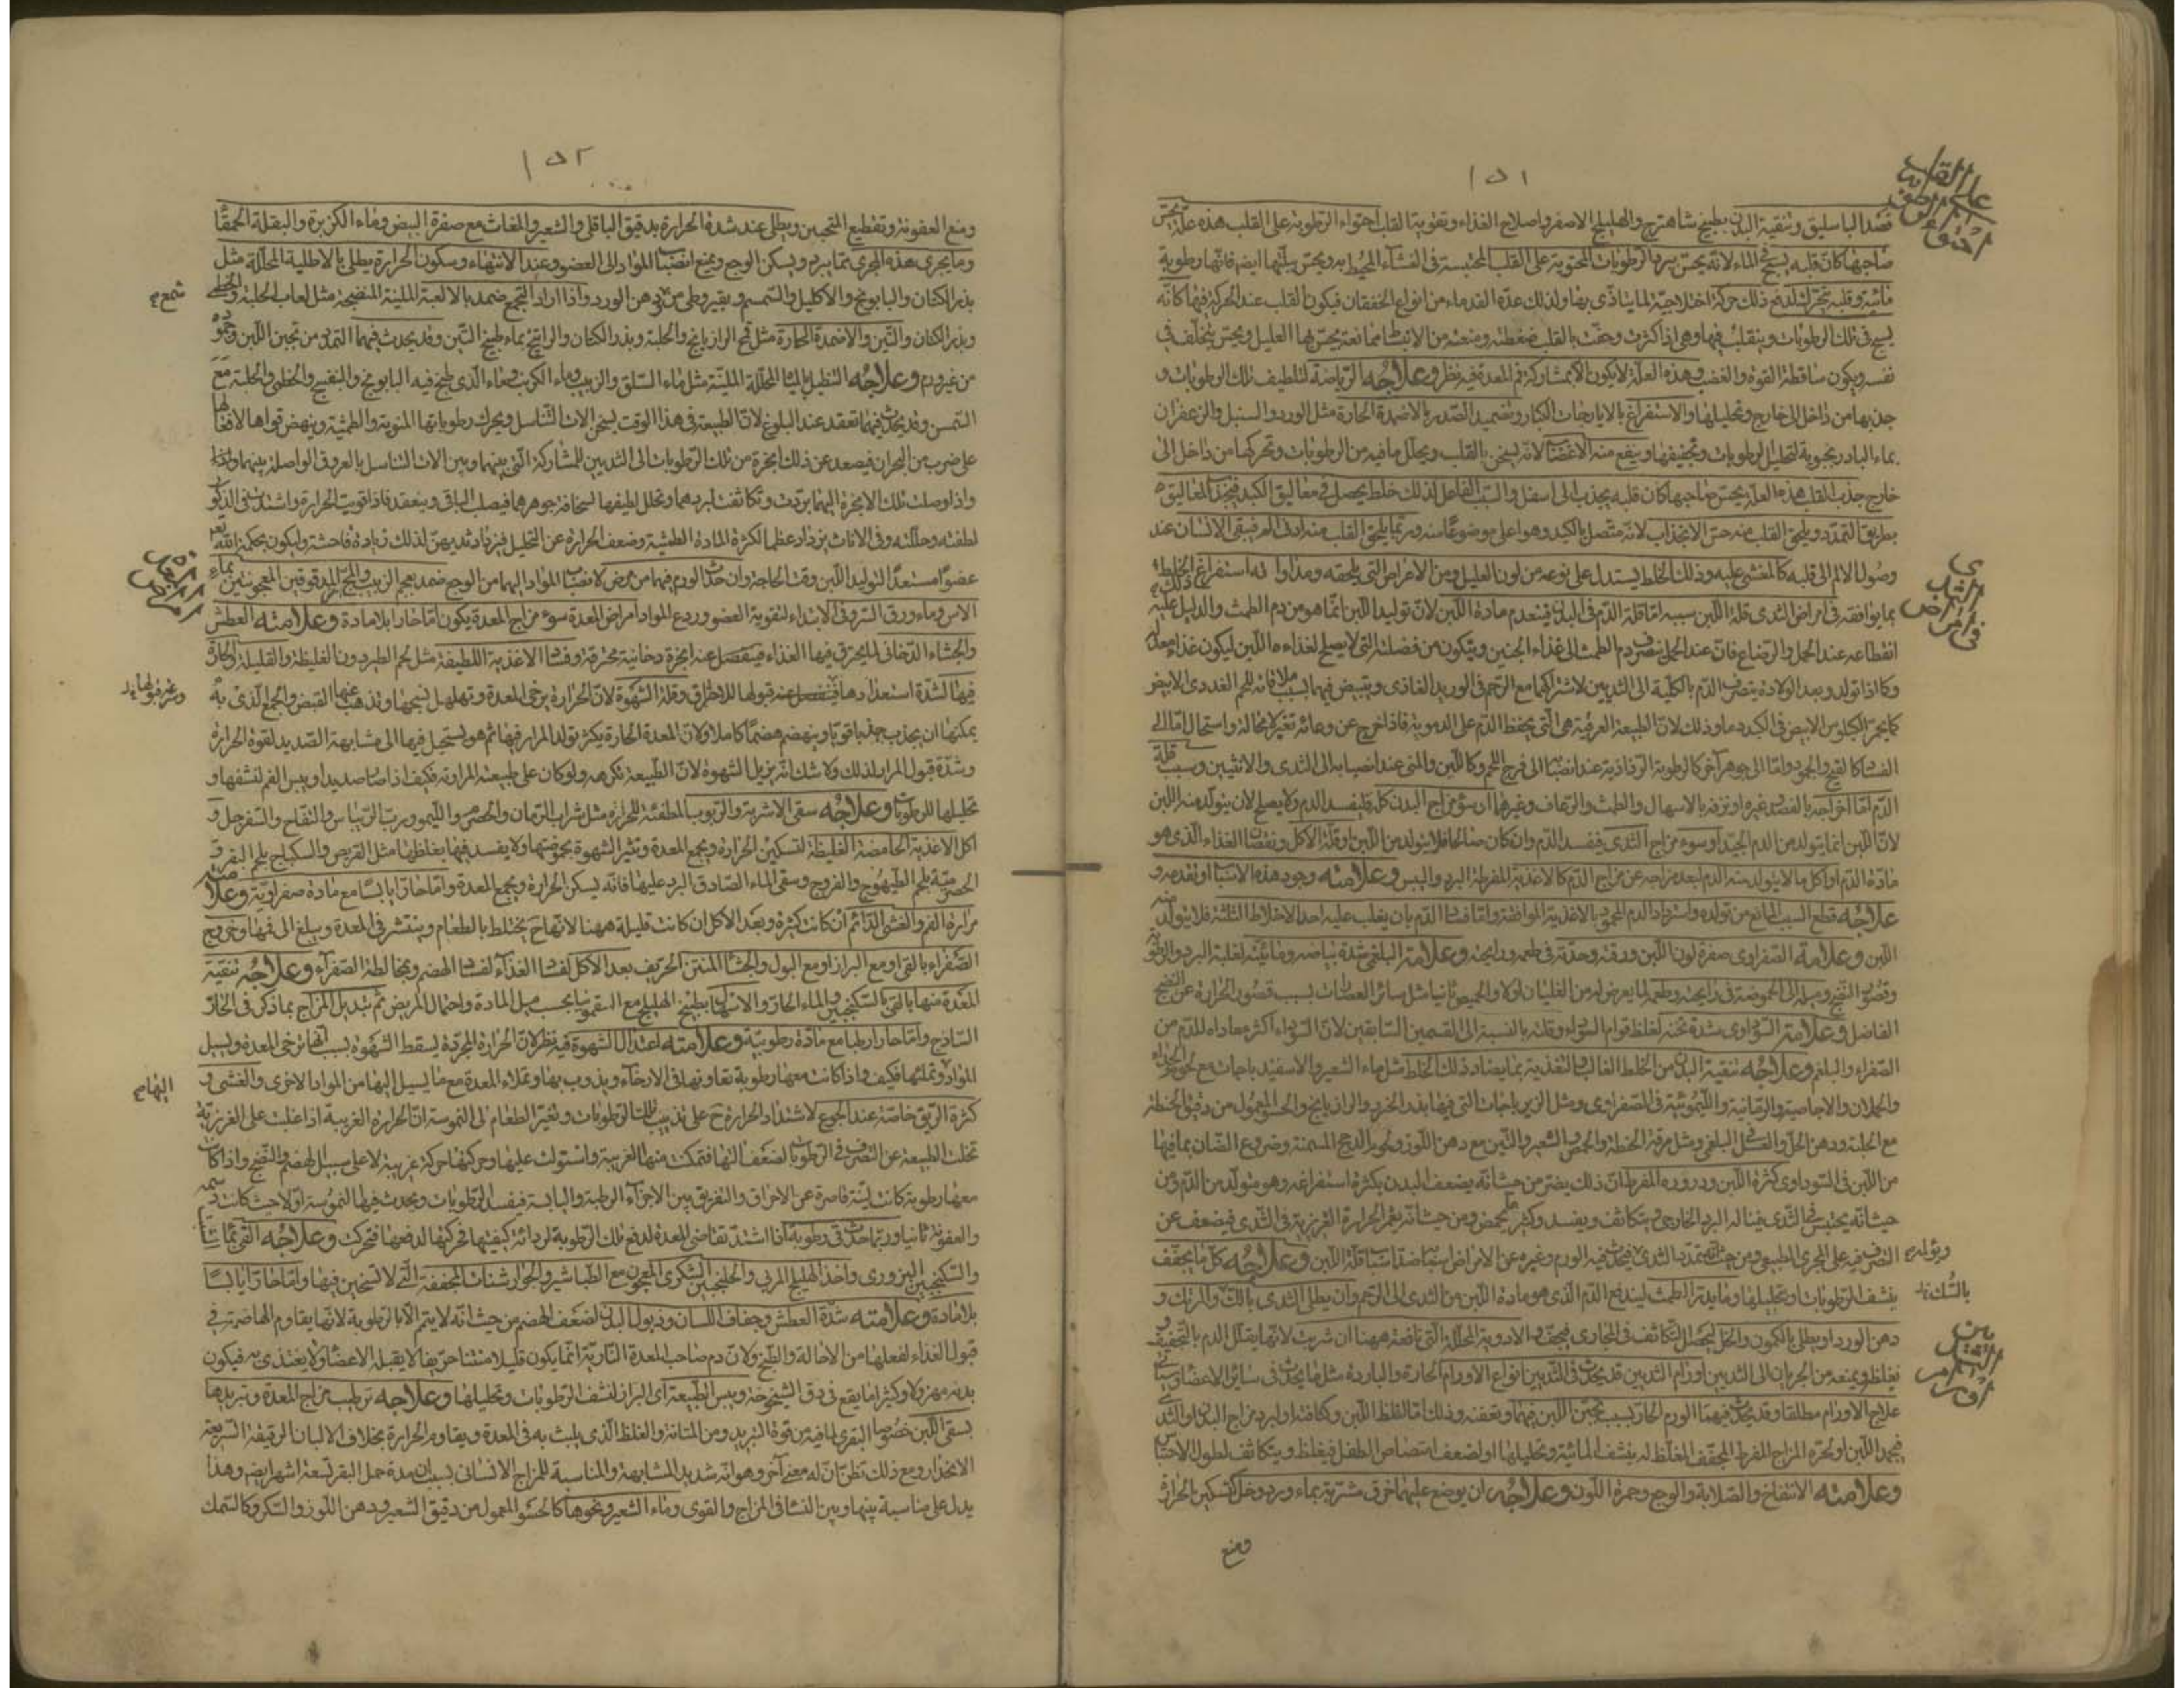 ١٥١
فصد الباسليق وتنقية البدن بطبيخ شاهترج والهليلج الاصفر واصلاح الغذاء وتقوية القلب احتواء الرطوبة على القلب هذه علة يحس
صاحبها كان قلبه يسبح فى الماء لانه يحس ببرد الرطوبات المحتوية على القلب المحتبسة فى الغشاء المحيط به ويحس ببلتها ايضا فانها رطوبة
مائية وقلبه يتحرك لدفع ذلك حركة اختلاجية لما يتاذى بها ولذلك عده القدماء من انواع الخفقان فيكون القلب عند الحركة فيها كانه
يسبح فى تلك الرطوبات ويتقلب فيها وهى اذا كثرت وحفت بالقلب ضغطته ومنعته من الانبساط ممانعة يحس بها العليل ويحس بتخلف فى
نفسه ويكون ساقطة القوة والغضب وهذه العلة لا يكون الا بمشاركة فم المعدة فيه نظر وعلاجه الرياضة لتلطيف تلك الرطوبات و
جذبها من داخل الى خارج وتحليلها والاستفراغ بالايارجات الكبار وتضميد الصدر بالاضمدة الحارة مثل الورد والسنبل والزعفران
بماء البادرنجبوية لتحليل الرطوبات وتجفيفها وينفع منه الاغضاب لانه يسخن القلب ويحلل ما فيه من الرطوبات وتحركها من داخل الى
خارج جذب القلب هذه العلة يحس صاحبها كان قلبه يجذب الى اسفل والسبب الفاعل لذلك خلط يحصل فى معاليق الكبد فيجذب المعاليق
بطريق التمدد ويلحق القلب منه حس الانجذاب لانه متصل بالكبد وهو اعلى موضوعا منه وربما يلحق القلب منه اذى الم فيبقى الانسان عند
وصول الالم الى قلبه كالمغشى عليه وذلك الخلط يستدل على نوعه من لون العليل ومن الاعراض التى يلحقه ومداواته استفراغ ذلك الخلط
بما يوافقه فى امراض الثدى قلة اللبن سببه اما قلة الدم فى البدن فينعدم مادة اللبن لان توليد اللبن انما هو من دم الطمث والدليل عليه
انقطاعه عند الحمل والرضاع فان عند الحمل ينصرف دم الطمث الى غذاء الجنين ويتكون من فضلته التى لا يصلح لغذاءه اللبن ليكون غذاء معدا
وكما اذا تولد وبعد الولادة يتصرف الدم بالكلية الى الثديين لاشتراكهما مع الرحم فى الوريد الغاذى ويتبيض فيهما بسبب ملاقاته للحم الغددى الابيض
كما يحمر الكيلوس الابيض فى الكبد دما وذلك لان الطبيعة العرقية هى التى يحفظ الدم على الدموية فاذا خرج عن وعائه تغير لا محالة واستحال اما الى
الفساد كالقيح والجمود واما الى جوهر آخر كالرطوبة الرذاذية عند انصبابها الى فرج اللحم وكاللبن والمنى عند انصبابه الى الثدى والانثيين وسبب قلة
الدم اما اخراجه بالفصد وغيره او نزفه بالاسهال والطمث والرعاف وغيرها او سوء مزاج البدن كله فيفسد الدم ولا يصلح لان يتولد منه اللبن
لان اللبن انما يتولد من الدم الجيد او سوء مزاج الثدى يفسد الدم وان كان صالحا فلا يتولد من اللبن او قلة الاكل ونقصان الغذاء الذى هو
مادة الدم او اكل ما لا يتولد منه الدم لبعد مزاجه عن مزاج الدم كالاغذية المفرطة البرد واليبس وعلامته وجود هذه الاسباب او تقدمه و
علاجه قطع السبب المانع من تولده واسترداد الدم المحمود بالاغذية الموافقة واما فساد الدم بان يغلب عليه احد الاخلاط الثلثة فلا يتولد منه
اللبن وعلامة الصفراوى صفرة لون اللبن ورقته وحدته فى طعمه ورايحته وعلامة البلغمى شدة بياضه ومائيته لغلبة البرد والرطوبة
وقصور النضج وميله الى الحموضة فى رايحته وطعمه لما يعرض له من الغليان اولا والحموضة ثانيا مثل سائر العصارات بسبب قصور الحرارة عن النضج
الفاضل وعلامة السوداوى شدة ثخنه لغلظ قوام السوداء وقلته بالنسبة الى القسمين السابقين لان السوداء اكثر معاداة للدم من
الصفراء والبلغم وعلاجه تنقية البدن من الخلط الغالب والتغذية بما يضاد ذلك الخلط مثل ماء الشعير والاسفيدباجات مع لحوم الجداء
والحملان والاجاصية والرمانية والليمونية فى الصفراوى ومثل الزيرباجات التى فيها بذر الخردل والرازيانج والحسو المعمول من دقيق الحنطة
مع الحلبة ودهن الخل والعسل البلغمى ومثل مرقة الحنطة والحمص والشعير والتين مع دهن اللوز ولحوم الدجج المسمنة وضروع الضان بما فيها
من اللبن فى السوداوى كثرة اللبن ودروره المفرطان ذلك يضر من حيث انه يضعف البدن بكثرة استفراغه وهو متولد من الدم ومن
حيث انه يحتبس فى الثدى فيناله البرد الخارجى ويتكاثف ويفسد وكثيرا ما يحمض ومن حيث انه يغمر الحرارة الغريزية فى الثدى فيضعف عن
التصرف فيه على المجرى الطبيعى ومن حيث انه يمدد الثدى فيحدث فيه الورم وغيره من الامراض اسبابه اضداد اسباب قلة اللبن وعلاجه كل ما يجفف
ينشف الرطوبات وتحليلها وما يدر الطمث ليندفع الدم الذى هو مادة اللبن من الثدى الى الرحم وان يطلى الثدى باللك والمرتك و
دهن الورد او يطلى بالكمون والخل ليحصل التكاثف فى المجارى فيجفف والادوية المحللة التى نافعة ههنا ان شربت لانها يقلل الدم بالتجفيف و
يغلظه ويمنعه من الجريان الى الثديين اورام الثديين قد يحدث فى الثديين انواع الاورام الحارة والباردة مثل ما يحدث فى سائر الاعضاء وسياتى
علاج الاورام مطلقا وقد يحدث فيهما الورم الحار بسبب تجبن اللبن فيهما وتعفنه وذلك اما لغلظ اللبن وكثافته او لبرد مزاج البدن او الثدى
فيجمد اللبن او لحرة المزاج المفرط المجفف المغلظ له بنشف المائية وتحليلها او لضعف امتصاص الطفل فيغلظ ويتكاثف لطول الاحتباس
وعلامته الانتفاخ والصلابة والوجع وحمرة اللون وعلاجه ان يوضع عليهما خرق مشربة بماء ورد وخل لتسكين الحرارة
ومنع
علة القلب
فى امراض الثدى
ويؤلمه
بالشك
اورام الثديين
١٥٢
ومنع العفونة وتقطيع التجبن ويطلى عند شدة الحرارة بدقيق الباقلى والشعير والمغاث مع صفرة البيض وماء الكزبرة والبقلة الحمقاء
وما يجرى هذه المجرى مما يبرد ويسكن الوجع ويمنع انصباب المواد الى العضو وعند الانتهاء وسكون الحرارة يطلى بالاطلية المحللة مثل
بذر الكتان والبابونج والاكليل والسمسم وبقيروطى من دهن الورد واذا اراد التجمع ضمد بالالعبة الملينة المنضجة مثل لعاب الحلبة والخطمى
وبذر الكتان والتين والاضمدة الحارة مثل قح الرازيانج والحلبة وبذر الكتان والراتينج بماء طبيخ التين وقد يحدث فيهما التمدد من تجبن اللبن وجموده
من غير ورم وعلاجه التنطيل بالمياه المحللة الملينة مثل ماء السلق والزبيب وماء الكرنب وماء الذى طبخ فيه البابونج والبنفسج والخطمى والحلبة مع
السمن وقد يحدث فيهما تعقد عند البلوغ لان الطبيعة فى هذا الوقت يسخن الات التناسل ويحرك رطوباتها المنوية والطمثية وينهض قواها لافعالها
على ضرب من البحران فيصعد عن ذلك ابخرة من تلك الرطوبات الى الثديين للمشاركة التى بينهما وبين الات التناسل بالعروق الواصلة بينهما
واذا وصلت تلك الابخرة اليهما بردت وتكاثفت لبردهما وتحلل لطيفها لسخافة جوهرهما فيصلب الباقى وينعقد فاذا قويت الحرارة واشتدت فى الذكور
لطفته وحللته وفى الاناث يزداد عظما لكثرة المادة الطمثية وضعف الحرارة عن التحليل فيزداد ثديهن لذلك زيادة فاحشة وليكون بحكمة الله تعالى
عضوا مستعدا لتوليد اللبن وقت الحاجة وان حدث الورم فيهما من مرض لانصباب المواد اليهما من الوجع ضمد بعجم الزبيب والمج المدقوقين المعجونين بماء
الاس وماء ورق السرو فى الابتداء لتقوية العضو وردع المواد امراض المعدة سوء مزاج المعدة يكون اما حارا بلا مادة وعلامته العطش
والجشاء الدخانى لما يحترق فيها الغذاء فينفصل عنه ابخرة دخانية محترقة وفساد الاغذية اللطيفة مثل لحم الطير دون الغليظة والقليلة الحارة
فيها لشدة استعدادها قبولها للاحتراق وقلة الشهوة لان الحرارة يرخى المعدة وتهلهل نسجها ويذهب عنها القبض والجمع الذى به
يمكنها ان يجذب جذبا قويا وينهضم هضما كاملا ولان المعدة الحارة يكثر تولد المرار فيها ثم هو يستحيل فيها الى مشابهة الصديد لقوة الحرارة
وشدة قبول المرار لذلك ولا شك انه يزيل الشهوة لان الطبيعة تكرهه ولو كان على طبيعته المرارية فكيف اذا صار صديدا ويبس الفم لنشفها و
تحليلها للرطوبات وعلاجه سقى الاشربة والربوب المطفئة للحرارة مثل شراب الرمان والحصرم والليمو ورب الريباس والتفاح والسفرجل و
اكل الاغذية الحامضة الغليظة لتسكين الحرارة ويجمع المعدة وتثير الشهوة بحموضتها ولا يفسد فيها بغلظها مثل القريص والسكباج بلحم البقر و
الحصرمية بلحم الطيهوج والفروج وسقى الماء الصادق البرد عليها فانه يسكن الحرارة ويجمع المعدة واما حارا يابسا مع مادة صفراوية وعلامته
مرارة الفم والغشى الدائم ان كانت كثيرة وبعد الاكل ان كانت قليلة ههنا لانها ح يختلط بالطعام وينتشر فى المعدة ويبلغ الى فمها وخروج
الصفراء بالقى او مع البراز او مع البول والجشاء المنتن الحريف بعد الاكل لفساد الغذاء لفساد الهضم ومخالطة الصفراء وعلاجه تنقية
المعدة منها بالقى بالسكنجبين والماء الحار والاسهال بطبيخ الهليلج مع السقمونيا بحسب ميل المادة واحتمال المريض ثم تبديل المزاج بما ذكر فى الحار
الساذج واما حارا رطبا مع مادة رطوبية وعلامته اعتدال الشهوة فيه نظر لان الحرارة المجردة يسقط الشهوة بسبب انها ترخى المعدة ويسيل
المواد وتملئها فكيف واذا كانت معها رطوبة تعاونها فى الارخاء ويذوب بها وتملاء المعدة مع ما يسيل اليها من المواد الاخرى والغشى و
كثرة الريق خاصة عند الجوع لاشتداد الحرارة ح على تذويب تلك الرطوبات وتغير الطعام الى النموسة اذا الحرارة الغريبة اذا غلبت على الغريزية
تخلت الطبيعة عن التصرف فى الرطوبات لضعف التها فتمكنت منها الغريبة واستولت عليها وحركتها حركة غريبة لا على سبيل الهضم والنضج واذا كانت
معها رطوبة كانت لينة قاصرة عن الاحراق والتفريق بين الاجزاء الرطبة واليابسة فيفسد الرطوبات ويحدث فيها النموسة اولا حيث كانت دسمة
والعفونة ثانيا وربما حدث قئ رطوبة اذا اشتد تقاضى المعدة لدفع تلك الرطوبة لرداءة كيفيتها فحركتها لدفعها فتحركت وعلاجه القى بماء
والسكنجبين البزورى واخذ الهليلج المربى والجلنجبين السكرى المعجون مع الطباشير والجوارشنات المجففة التى لا تسخين فيها واما حارا يابسا
بلا مادة وعلامته شدة العطش وجفاف اللسان وذبول البدن لضعف الهضم من حيث انه لا يتم الا بالرطوبة لانها يقاوم الهاضمة فى
قبول الغذاء لفعلها من الاحالة والطبخ ولان دم صاحب المعدة النارية انما يكون قليلا منتنا حريفا لا يقبله الاعضاء ولا يغتذى به فيكون
بدنه مهزولا وكثيرا ما يقع فى دق الشيخوخة ويبس الطبيعة اى البراز لنشف الرطوبات وتحليلها وعلاجه ترطيب مزاج المعدة وتبريدها
بسقى اللبن خصوصا البقرى لما فيه من قوة التبريد ومن المتانة والغلظ الذى يلبث به فى المعدة ويقاوم الحرارة بخلاف الالبان الرقيقة السريعة
الانحدار ومع ذلك تظن ان له معنى آخر وهو انه شديد المشابهة والمناسبة للمزاج الانسانى بسبب ان مدة حمل البقر تسعة اشهر ايضا وهذا
يدل على مناسبة بينها وبين النساء فى المزاج والقوى وماء الشعير ونحوها كالحسو المعمول من دقيق الشعير ودهن اللوز والسكر وكالسمك
شمع
امراض المعدة
اليها